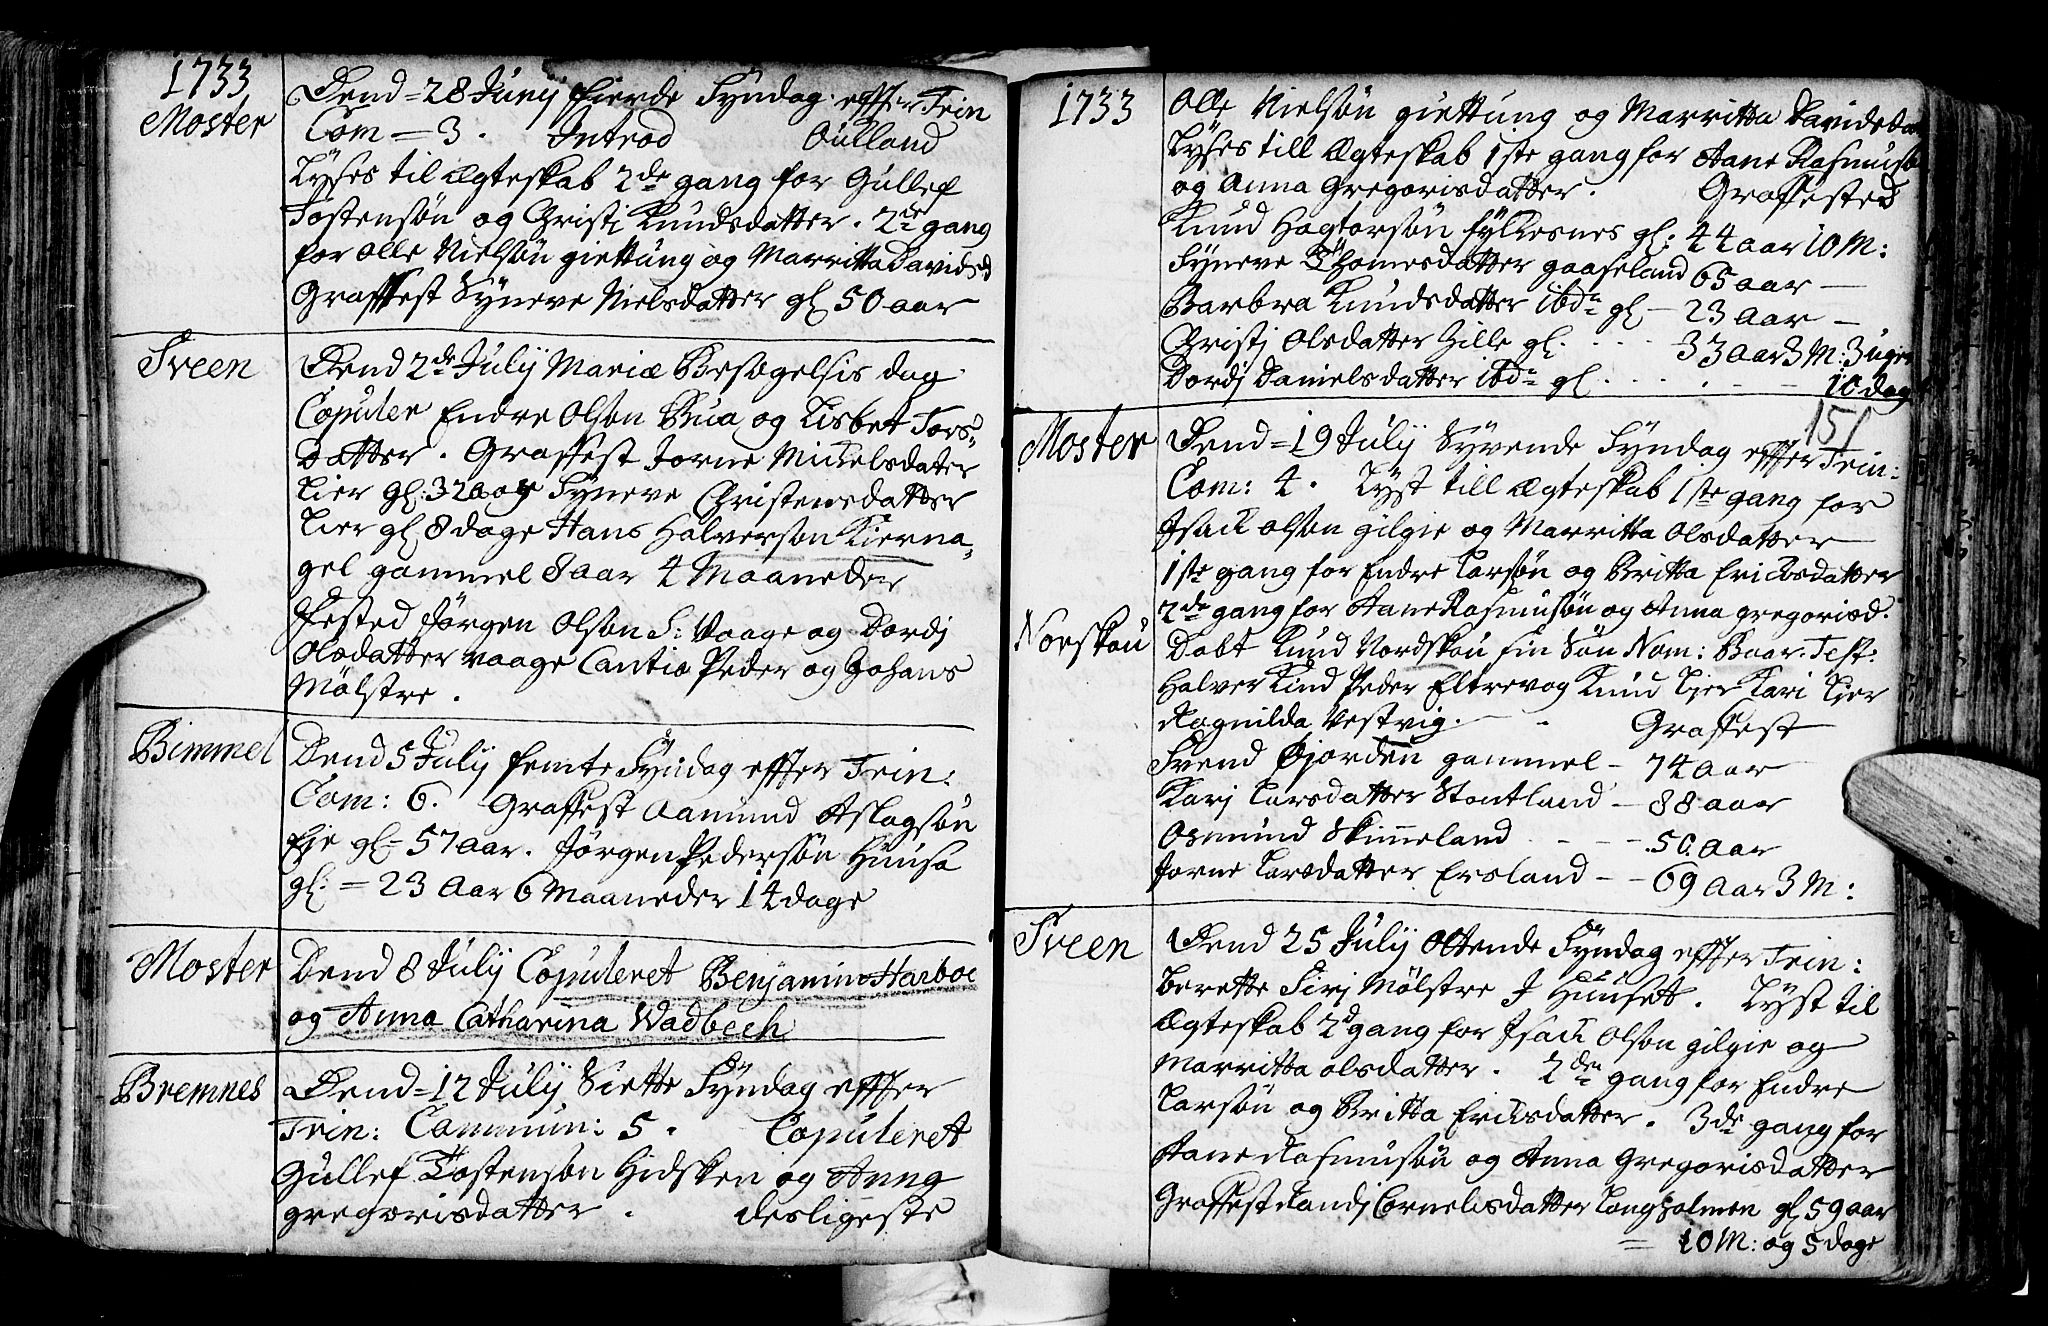 1733
Moster
Dend = 28 Junij fierde Syndag effter Trin
Com = 3. Introd Aulland
Lyses til Ægteskab 2de gang for Gullef
Tostensøn og Christi Knudsdatter. 2de gang
for Olle Nielsøn giettung og Marritta Davidsd
Graffest Syneve Nielsdatter gl 50 aar
Sveen
Dend 2de Julij Mariæ Besøgelsis dag
Copuler Endre Olson Bua og Lisbet Tors-
datter. Graffest Jorne Mickelsdater
Lier gl: 32 aar Syneve Christensdatter
Lier gl 8 dage Hans Halverson Kierna-
gel gammel 8 aar 4 Maaneder
Fested Jørgen Olson S: Vaage og Dordj
Olsdatter vaage Cantio Peder og Johans
Mølstre.
Bimmel
Dend 5 Julij femte Syndag effter Trin:
Com: 6. Graffest Aamund Aslagsøn
Eje gl = 57 aar. Jørgen Pedersøn Huusa
gl: = 23 Aar 6 Maaneder 14 dage
Moster
Dend 8 Julij Copuleret Benjamin Harboe
og Anna Catharina Wadbech
Bremnes
Dend = 12 Julij Siette Syndag effter
Trin: Commun: 5. Copuleret
Gullef Tostenson Hidsken og Anng
gregorisdatter. desligeste
1733
Olle Nielsøn giettung og Marritta Davidsdat
Lyses till Ægteskab 1ste gang for Aane Rasmusøn
og Anna Gregorisdatter. Graffested
Knud Hagtorsøn fylkesnes gl: 44 aar 10 M:
Syneve Thomesdatter gaaseland 65 aar —
Barbra Knudsdatter ibdn gl — 23 Aar —
Christj Olsdatter Hille gl. . . . 33 Aar 3 M: 3 uger
Dordj Danielsdatter ibdn gl. . . . — — 10 dag
151
Moster
Dend = 19 Julij Syvende Syndag effter Trin:
Com: 4. Lyst till Ægteskab 1ste gang for
Isack olson gilgie og Marritta Olsdatter
1ste gang for Endre Larsøn og Britta Ericksdatter
2de gang for Aane Rasmusøn og Anna gregorisd.
Norskou
Døbt Knud Nordskou sin Søn Nom: Baar. Test:
Halver Kind Peder Eltrevog Knud Lier Kari Lier
Ragnilda Vestvig. — . Graffest
Svend Øjorden gammel — 74 aar
Karj Larsdatter Stontland — 88 aar
Osmund Skimmeland - - - 50. Aar
Jorne Larsdatter Ersland — — 69 Aar 3 M:
Sveen
Dend 25 Julij Ottende Syndag effter Trin:
Berette Sirj Mølstre I Huuset. Lyst til
Ægteskab 2d gang for Isack Olson gilgie og
Marritta olsdatter. 2den gang for Endre
Larsøn og Britta Ericksdatter. 3de gang for
Aane Rasmusøn og Anna Gregorisdatter
Graffest Randj Cornelisdatter Langholmen gl 59 aar
= 10 M: og 5 dage